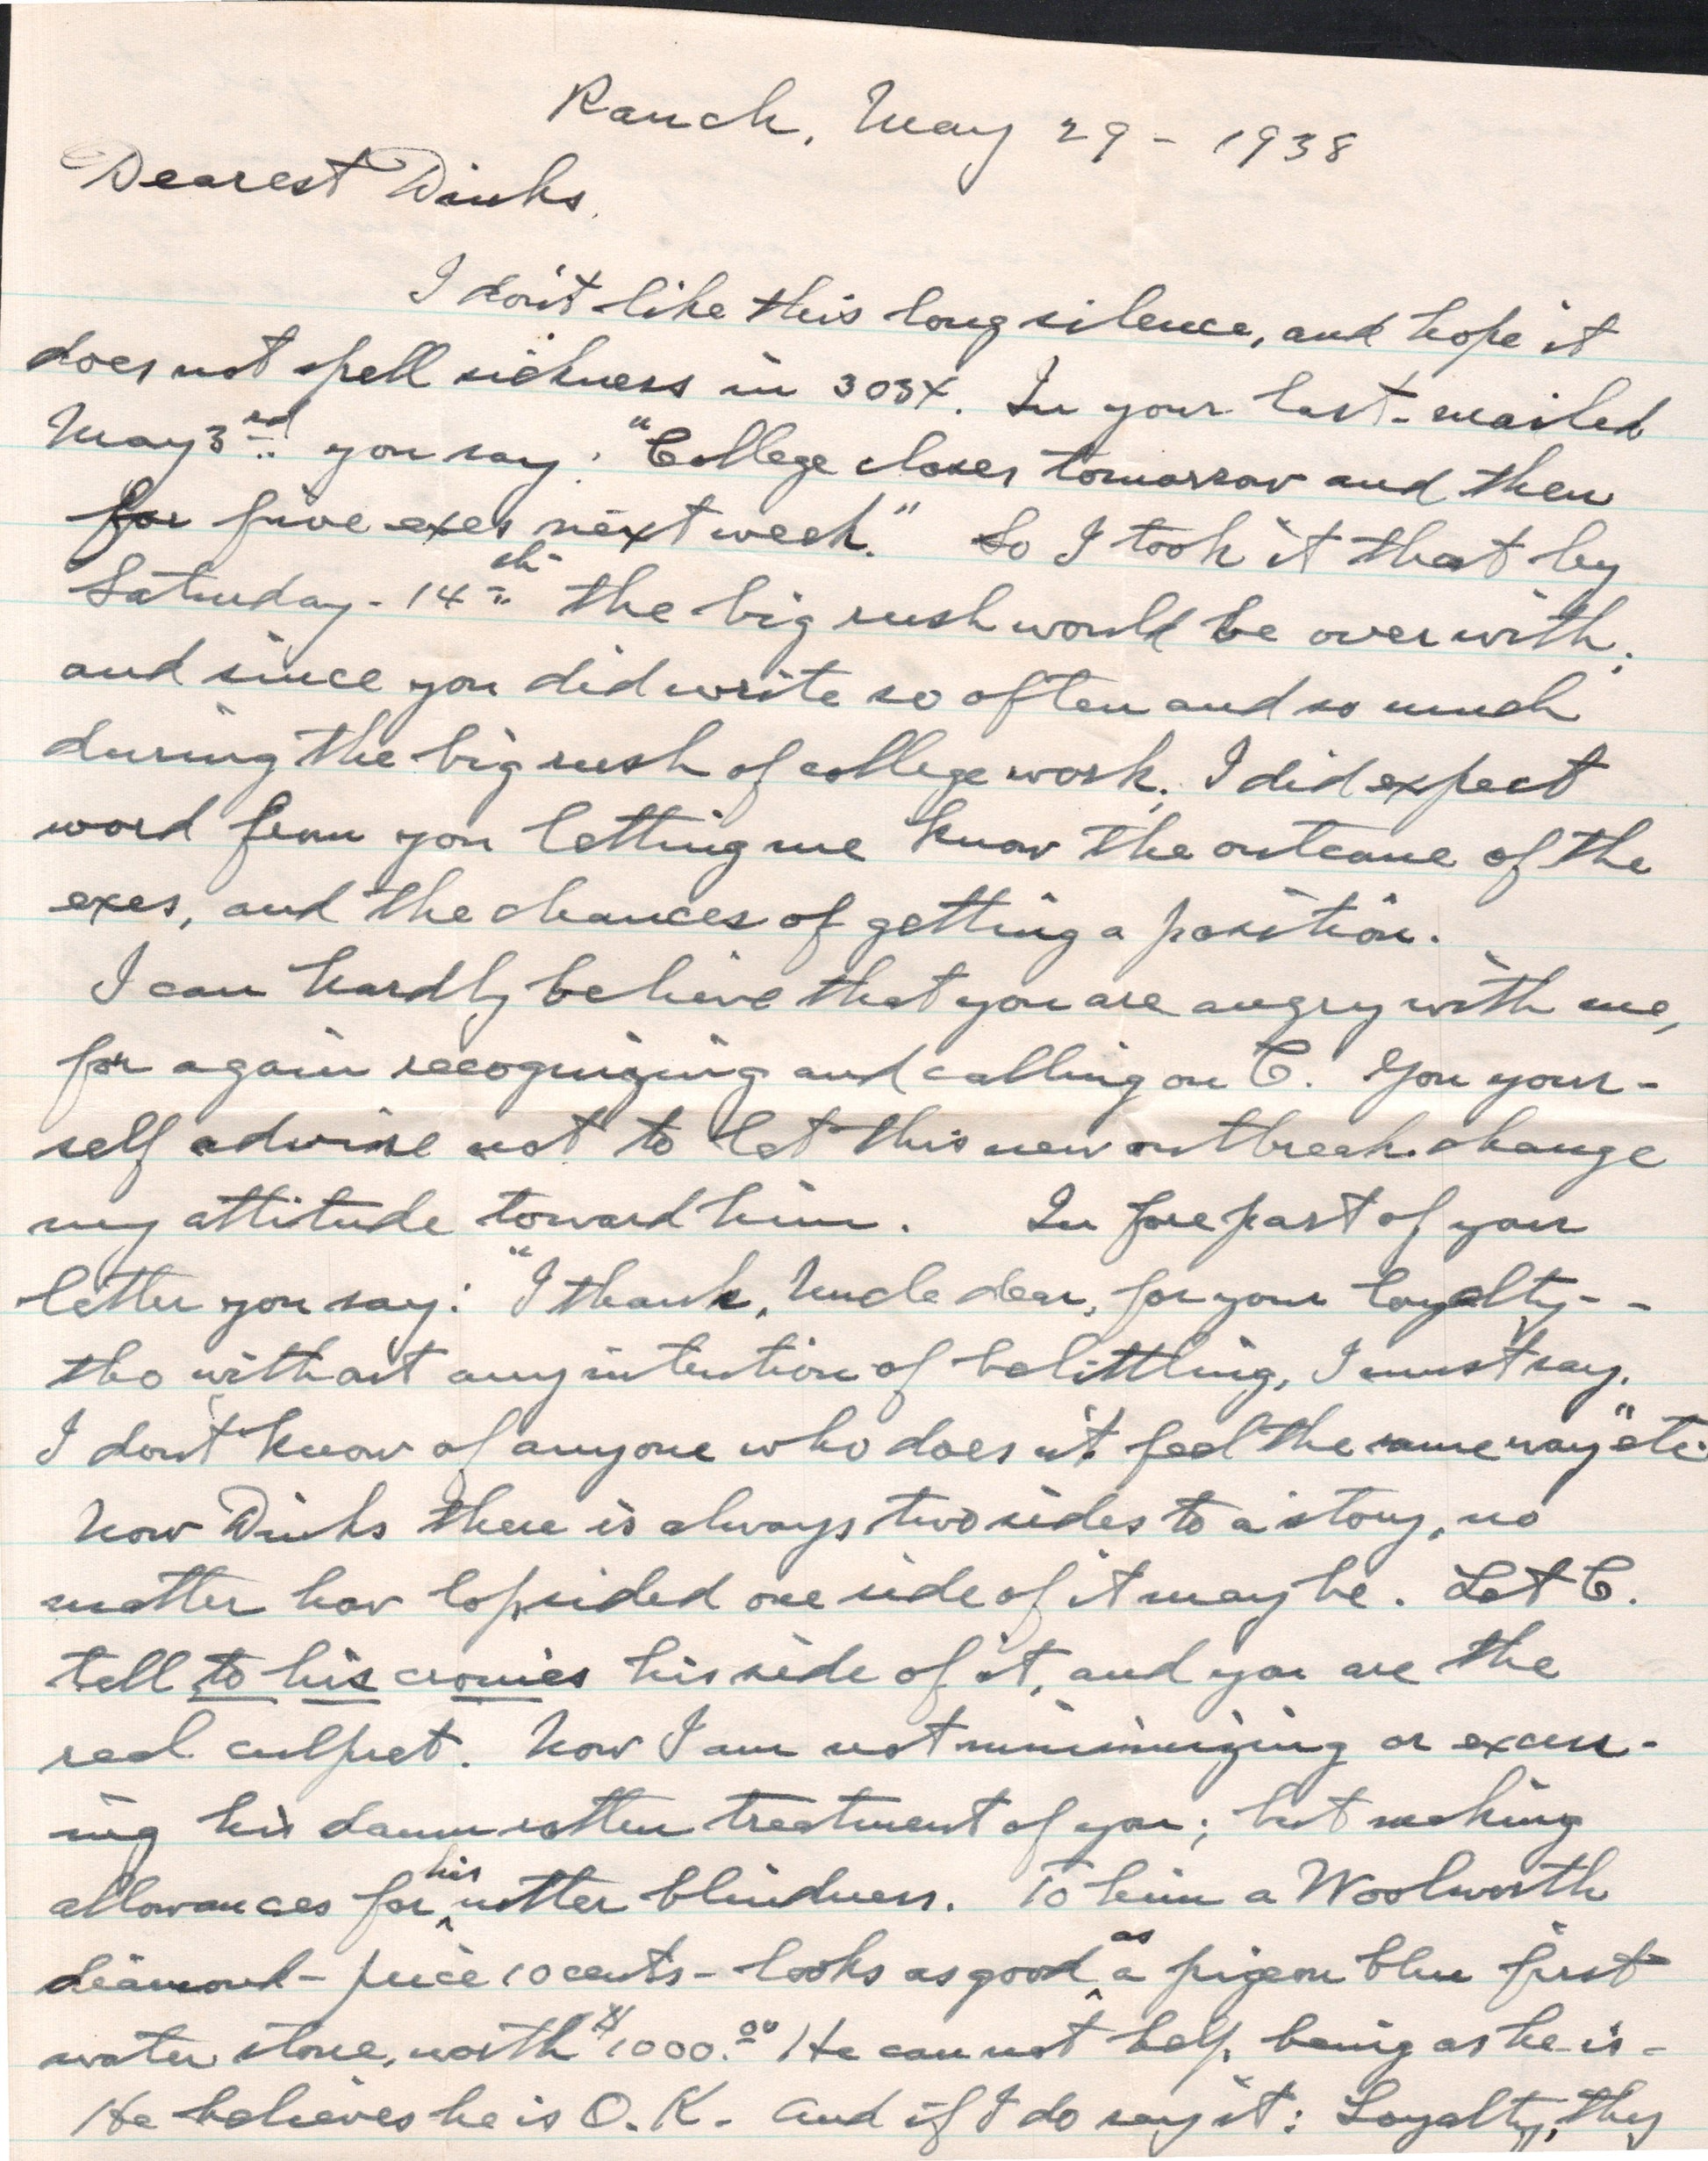 Ranch, May 29 - 1938
Dearest Dinks,
I don't like this long silence, and hope it
does not spell sickness in 303X. In your last - mailed
May 3rd you say: "College closes tomorrow and then
for five exes next week." So I took it that by
Saturday - 14th the big rush would be over with;
and since you did write so often and so much
during the big rush of college work, I did expect
word from you letting me know the outcome of the
exes, and the chances of getting a position.
I can hardly believe that you are angry with me,
for again recognizing and calling on C. You your-
self advise not to let this new outbreak change
my attitude toward him. In fore part of your
letter you say: "I thank, Uncle dear, for your loyalty - -
tho without any intention of belittling, I must say,
I don't know of anyone who does n't feel the same way" etc.
Now Dinks there is always two sides to a story, no
matter how lopsided one side of it may be. Let C.
tell to his cronies his side of it, and you are the
real culpret. Now I am not minimizing or excus-
ing his damn rotten treatment of you; but making
allowances for his utter blindness. To him a Woolworth
diamond - price 10 cents - looks as good as a pigeon blue first
water stone, worth $1000.00 He can not help being as he is -
He believes he is O.K. - And if I do say it: Loyalty, thy